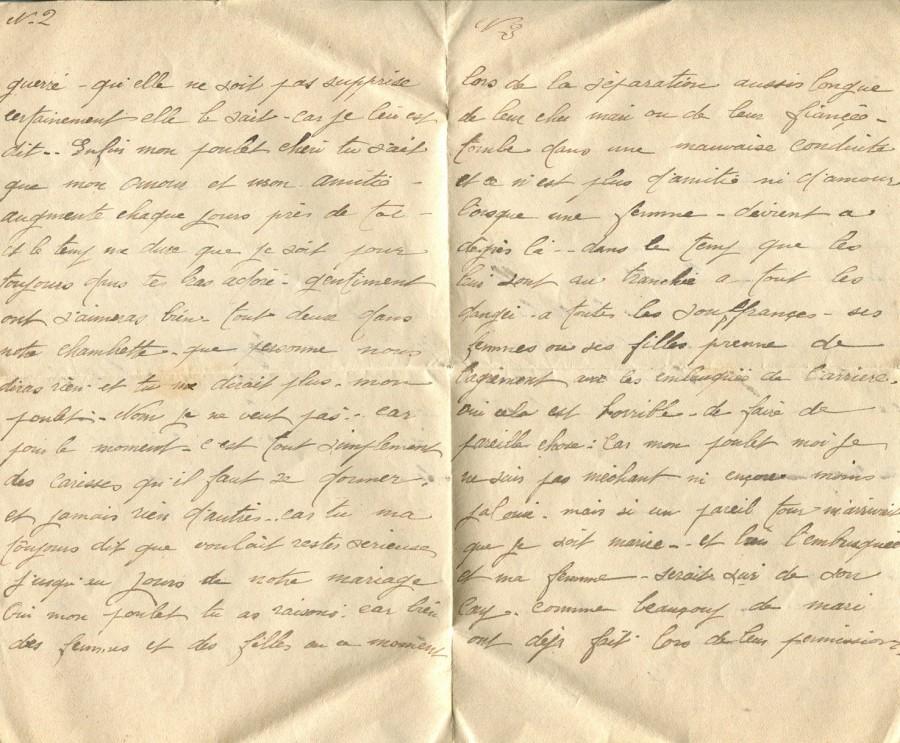 N. 2
guerre - qu'elle ne soit pas supprise
certainement elle le sait - car je lui est
dit - - Enfin mon poulet chéri tu sait
que mon amour et mon amitié -
augmente chaque jours près de toi -
et le temp me dure que je soit pour
toujours dans tes bras adoré - gentiment
ont s'aimeras bien tout deux dans
notre chambette - que personne nous
diras rien et tu me dirait plus - mon
poulet - Non je ne veut pas - car
pour le moment - c'est tout simplement
des caresses qu'il faut se donner
et jamais rien d'autres - - car tu ma
toujours dit que voulait rester serieuse
jusqu'au jours de notre mariage
Oui mon poulet tu as raisons. car bien
des femmes et des filles en ce moment
N 3
lors de la séparation aussis longue
de leur cher mari ou de leur françes -
tombe dans une mauvaise conduite
et ce n'est plus d'amitié ni d'amour
lorsque une femme - devient a
degrés là - - dans le temp que les
leur sont au tranchée a tout les
danger - a toutes les souffrances - ses
femmes ou ses filles prenne de
l'agrément avec les embusqués de l'arriere -
oui cela est horrible - de faire de
pareille chose : Car mon poulet moi je
ne suis pas méchant ni encore moins
jaloux - mais si un pareil tour m'arrivait
que je soit marié - - et l'embusquée
et ma femme - serait sur de son
cay. comme beaucoup de mari
ont déjà fait lors de leur permission